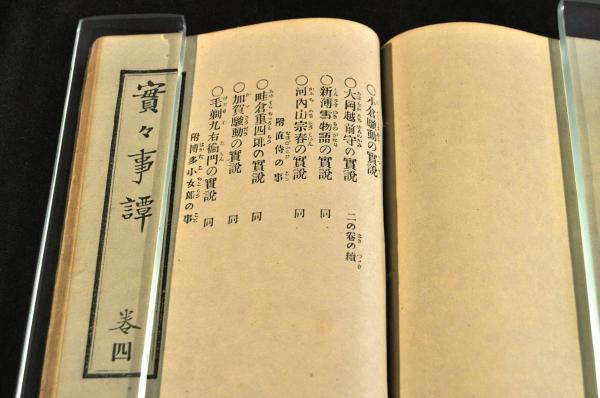 ○小倉騷動の實說
○大岡越前守の實說 二の卷の續
○新薄雪物語の實說 同
○河內山宗春の實說 同
附直侍の事
○畦倉重四郎の實說 同
○加賀騷動の實說 同
○毛剃九右衞門の實說 同
附博多小女郎の事
實々事譚
卷四